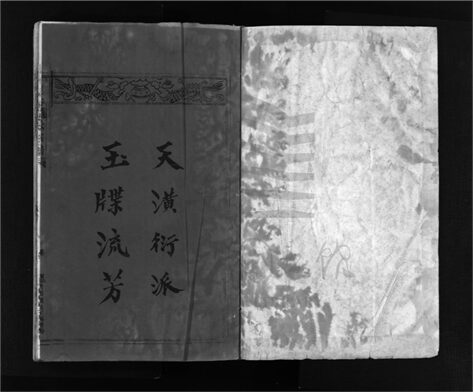 天潢衍派
玉牒流芳